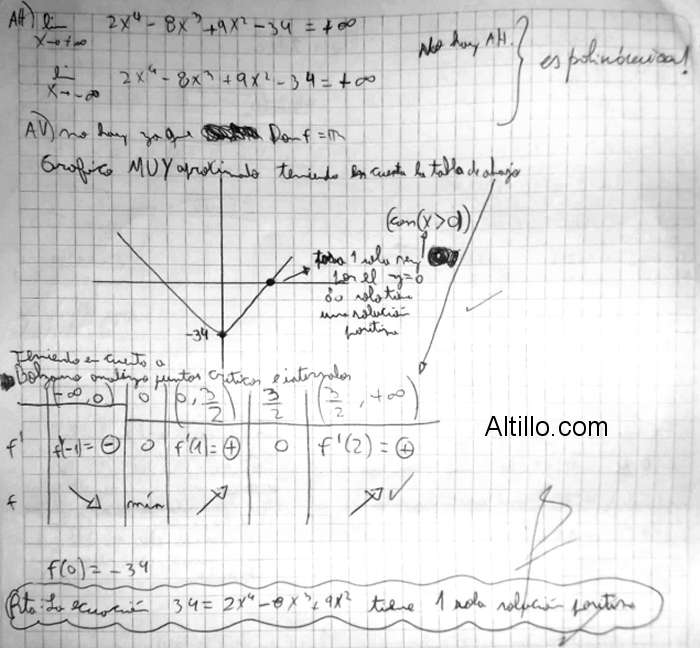 AH) lim x→+∞ 2x⁴ - 8x³ + 9x² - 34 = +∞
lim x→-∞ 2x⁴ - 8x³ + 9x² - 34 = +∞
No hay AH.
es polinómica!
AV) no hay ya que Dom f = ℝ
Grafico MUY aproximado teniendo en cuenta la tabla de abajo
(con (x>0))
pasa 1 sola vez
por el y=0
solo tiene
una solución
positiva
-34
Teniendo en cuenta a
Bolzano analizo puntos criticos e intervalos
(-∞, 0) 0 (0, 3/2) 3/2 (3/2, +∞)
f' f'(-1) = ⊖ 0 f'(1) = ⊕ 0 f'(2) = ⊕
f ↘ mín ↗ ↗ ✓
Altillo.com
f(0) = -34
Rta: La ecuación 34 = 2x⁴ - 8x³ + 9x² tiene 1 sola solución positiva